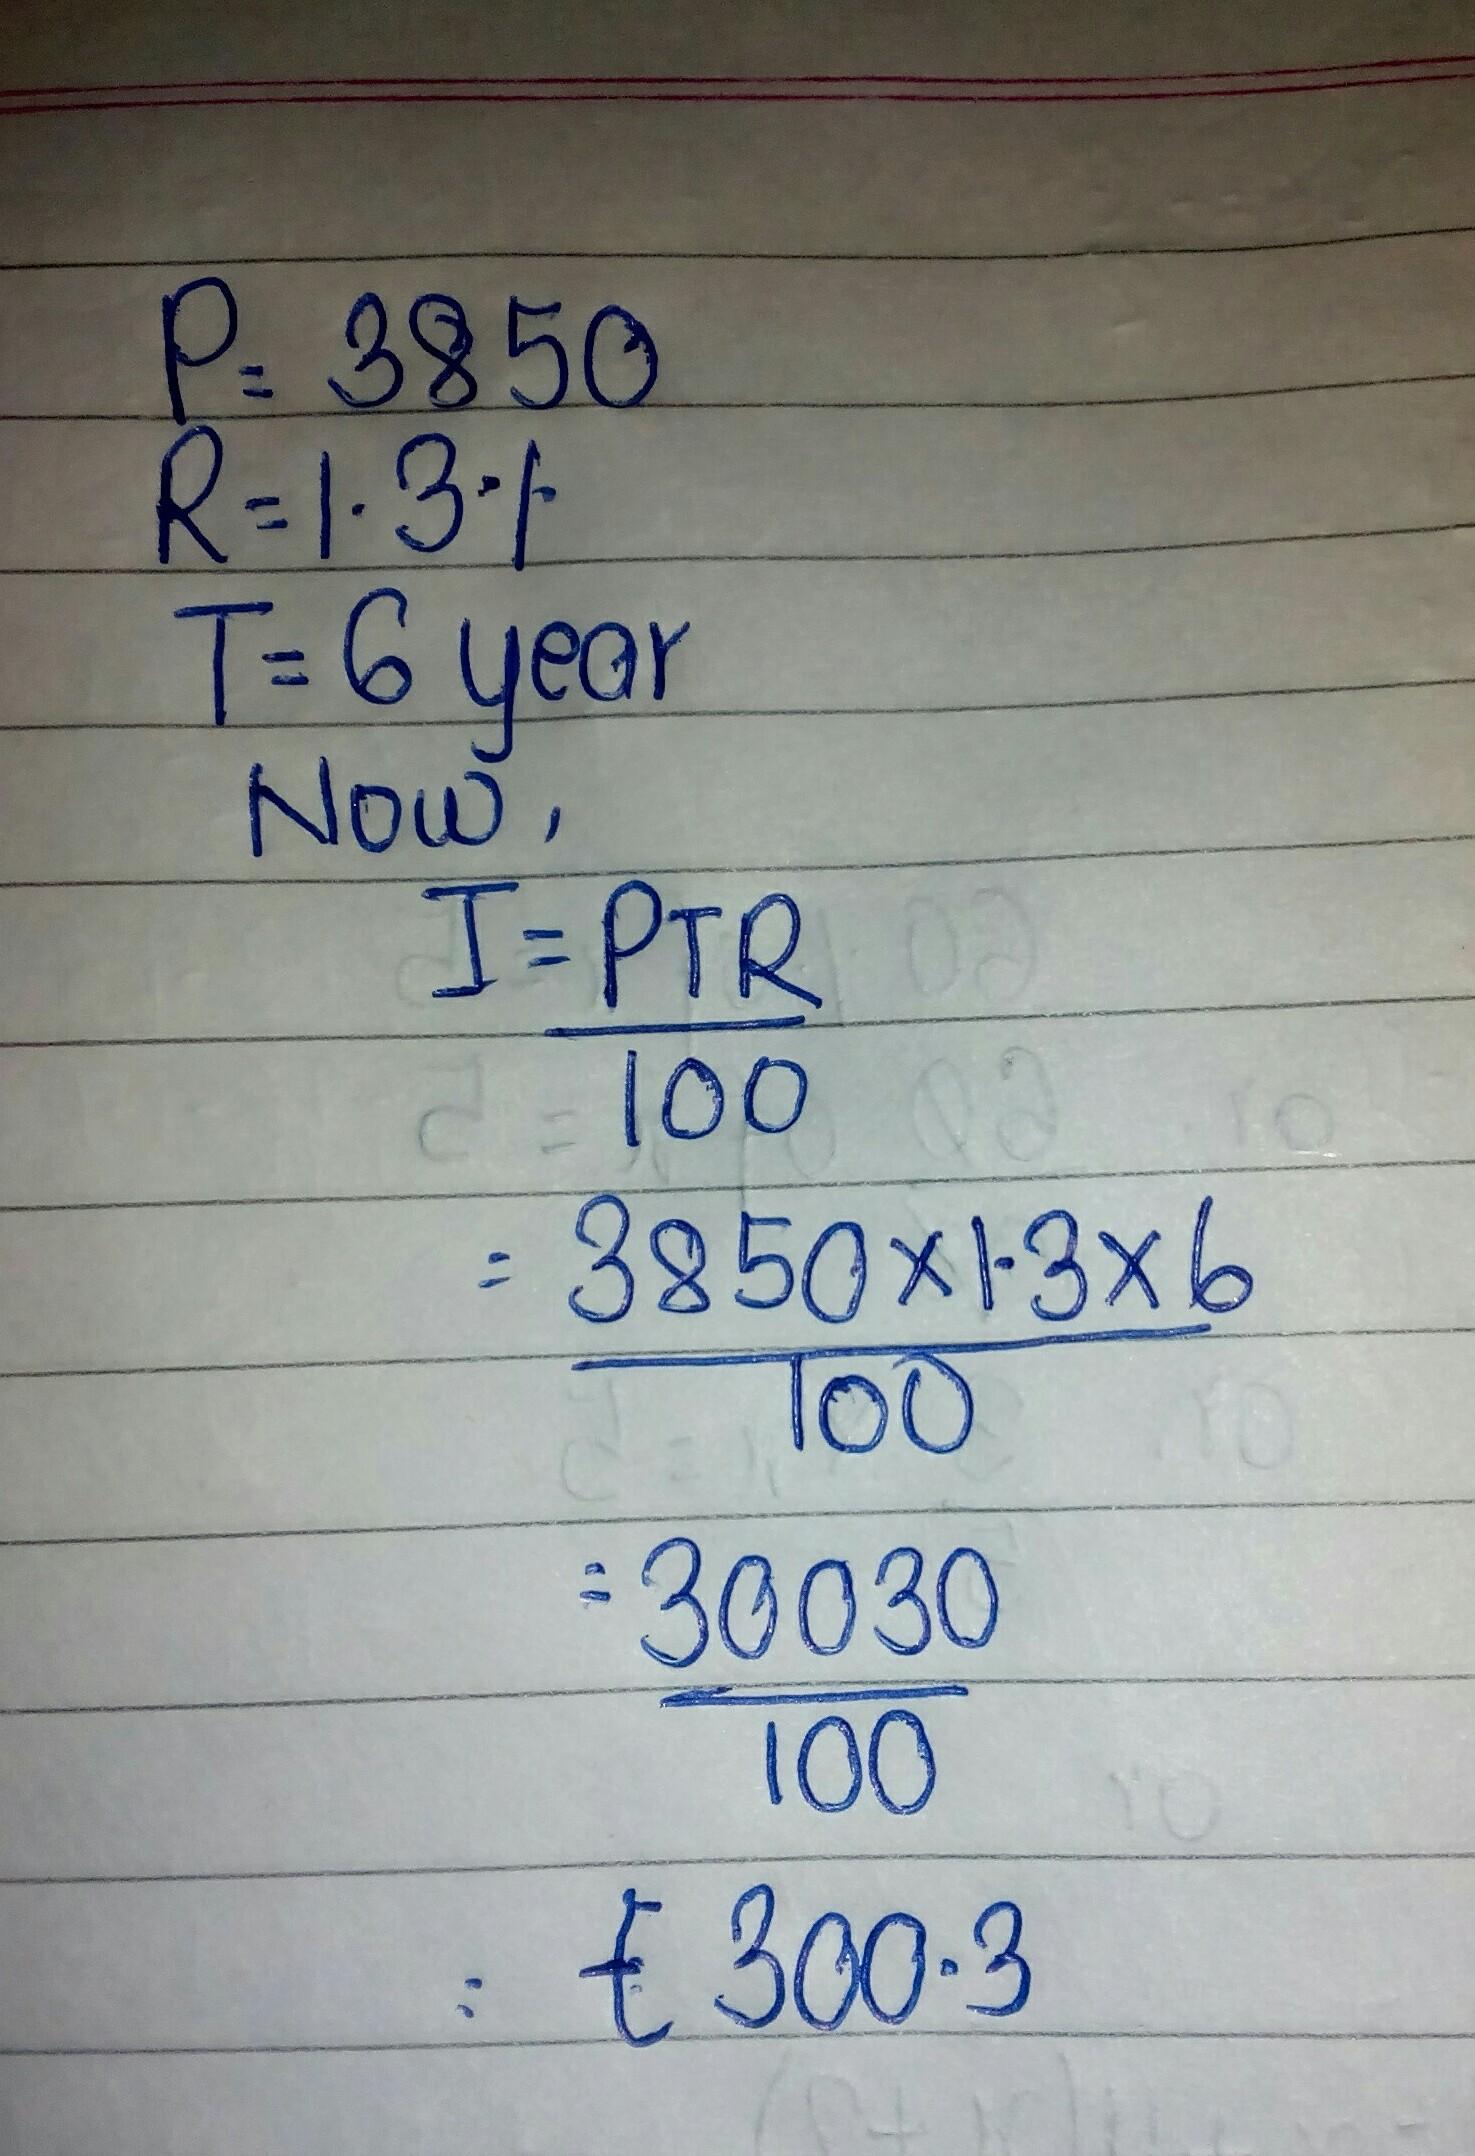 P= 3850
R=1.3%
T=6 year
Now,
I=PTR
100
=3850×1.3×6
100
=30030
100
: £ 300.3